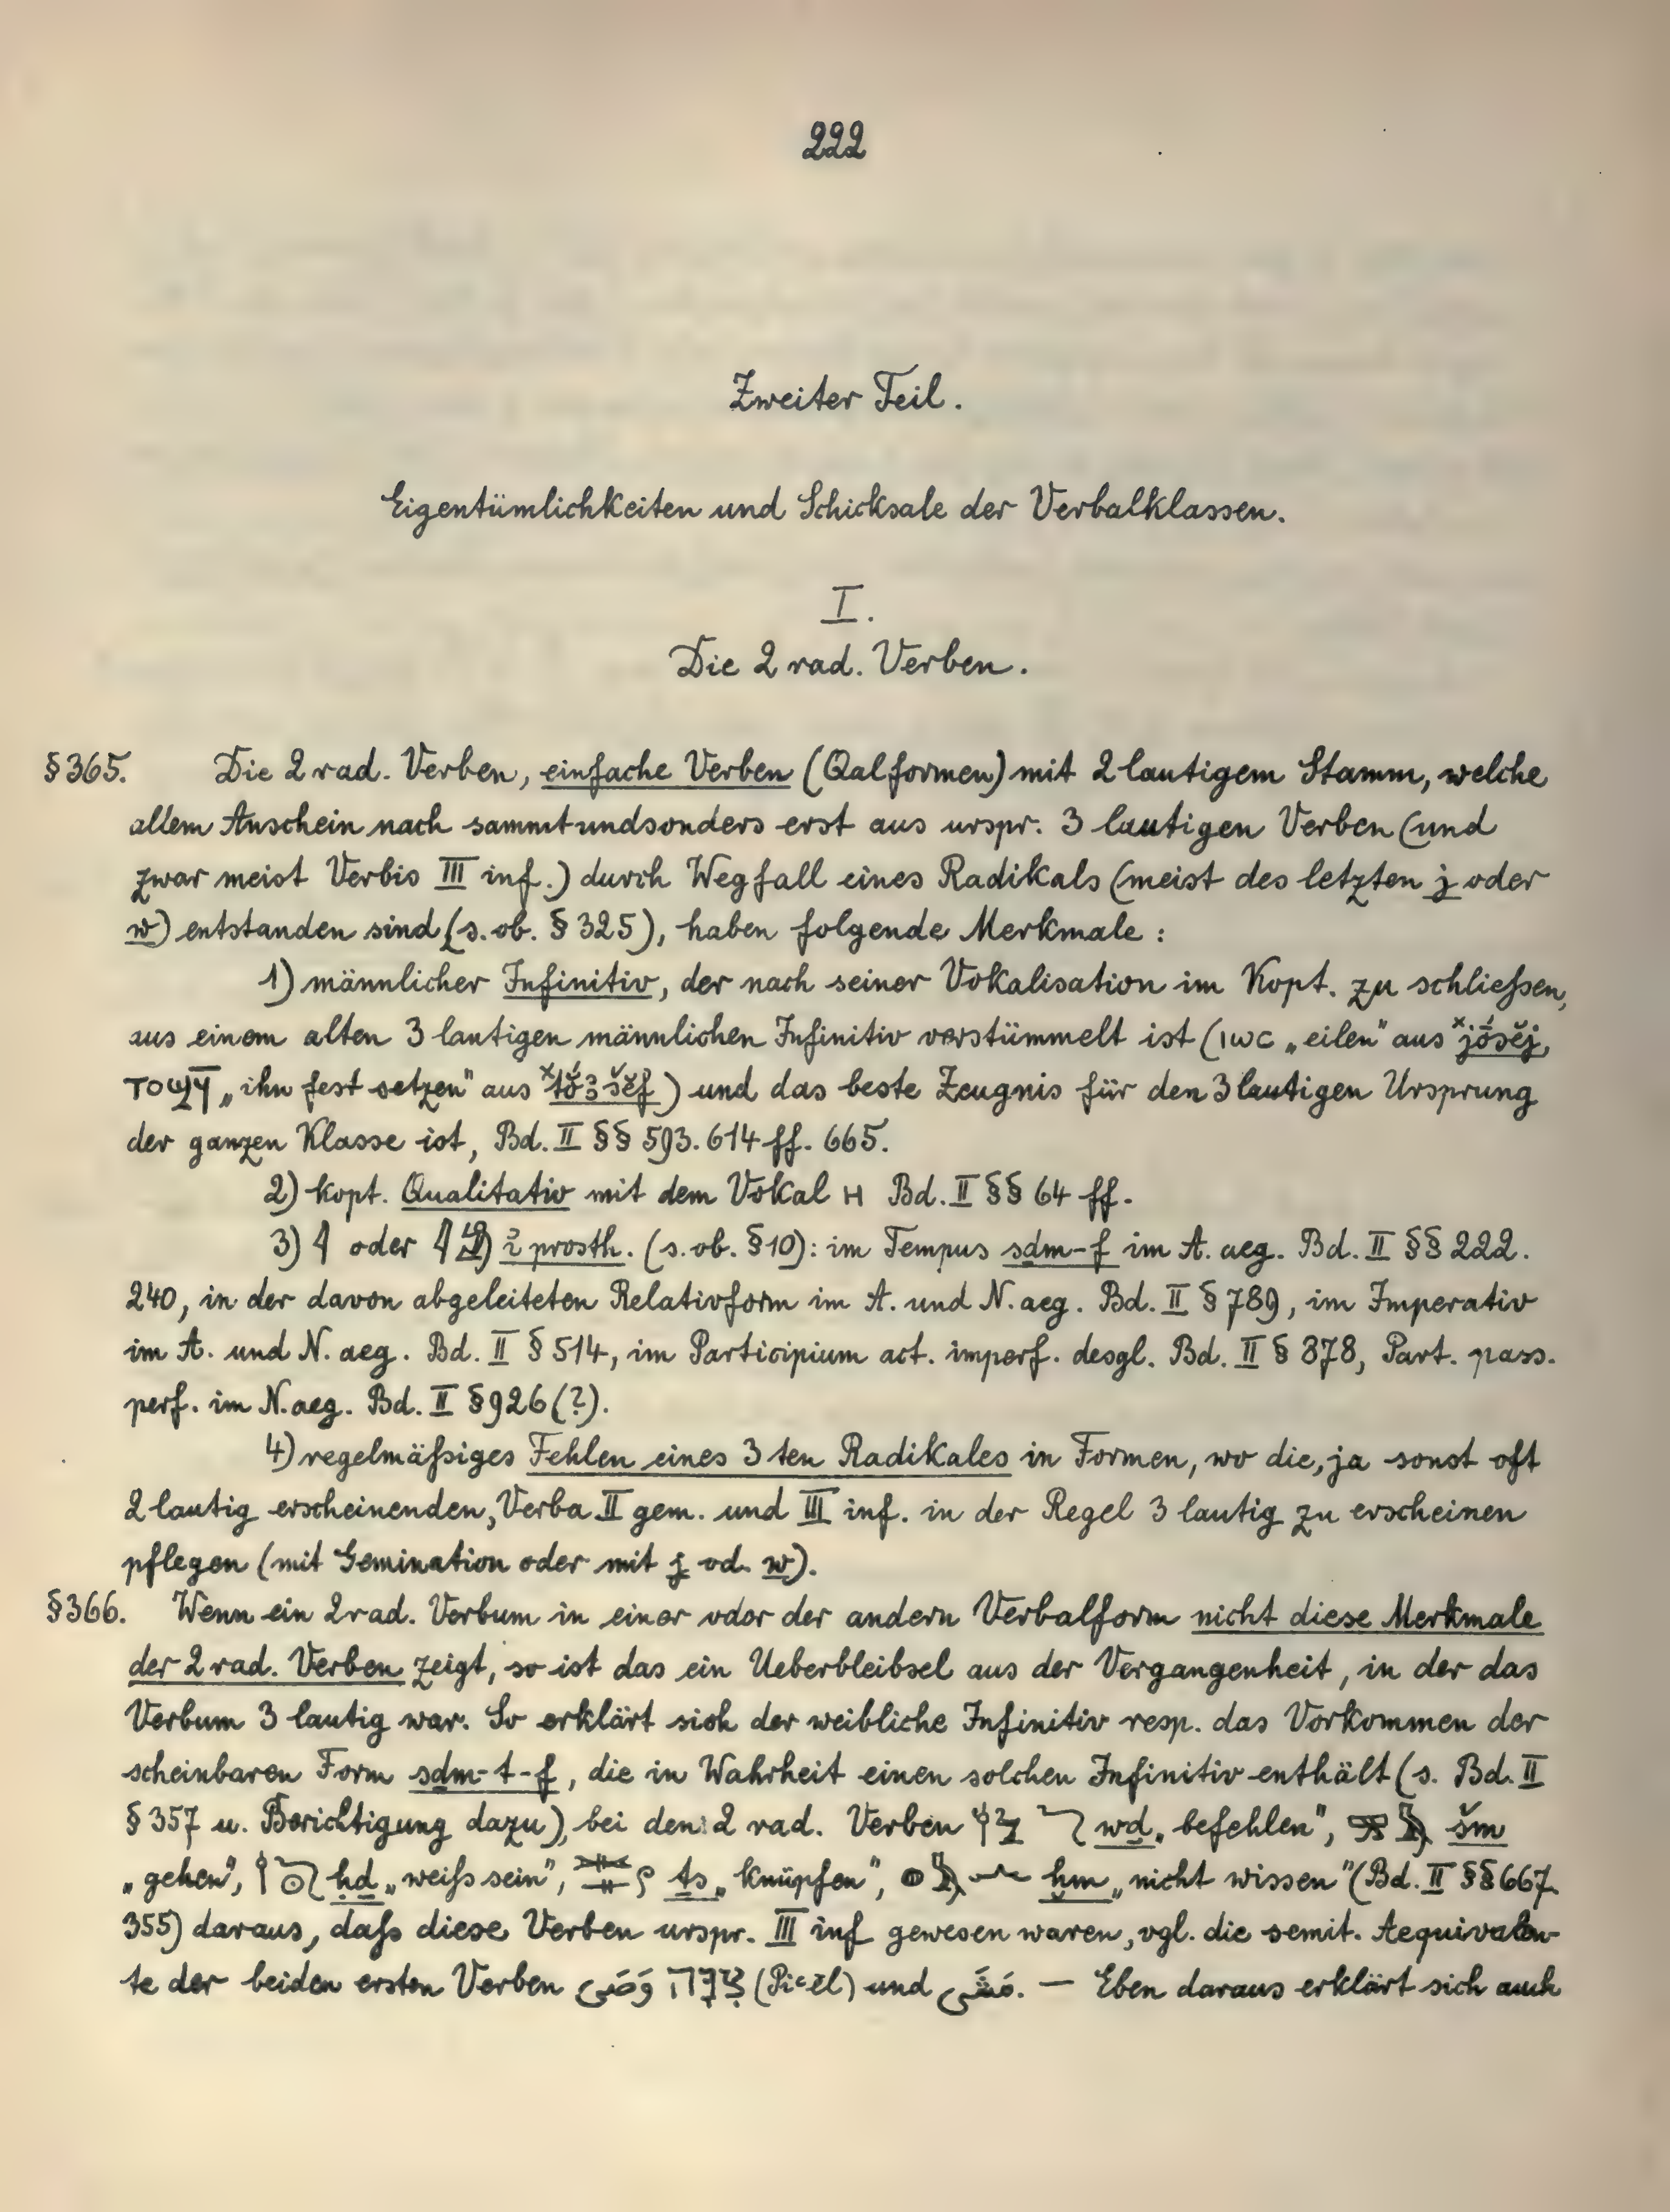 222
Zweiter Teil.
Eigentümlichkeiten und Schicksale der Verbalklassen.
I.
Die 2 rad. Verben.
§365. Die 2 rad. Verben, einfache Verben (Qalformen) mit 2 lautigem Stamm, welche
allem Anschein nach sammtundsonders erst aus urspr. 3 lautigen Verben (und
zwar meist Verbis III inf.) durch Wegfall eines Radikals (meist des letzten j oder
w) entstanden sind (s. ob. § 325), haben folgende Merkmale :
1) männlicher Infinitiv, der nach seiner Vokalisation im Kopt. zu schließen,
aus einem alten 3 lautigen männlichen Infinitiv verstümmelt ist (ⲓⲱⲥ „eilen" aus ˣjŏ́sĕj,
ⲧⲟϣϥ̄ „ihn fest setzen" aus ˣtŏ́ꜣšĕf) und das beste Zeugnis für den 3 lautigen Ursprung
der ganzen Klasse ist, Bd. II §§ 593. 614 ff. 665.
2) kopt. Qualitativ mit dem Vokal ⲏ Bd. II §§ 64 ff.
3) 𓇋 oder 𓇋𓀁) prosth. (s. ob. §10): im Tempus sdm-f im A. aeg. Bd. II §§ 222.
240, in der davon abgeleiteten Relativform im A. und N. aeg. Bd. II § 789, im Imperativ
im A. und N. aeg. Bd. II § 514, im Participium act. imperf. desgl. Bd. II § 878, Part. pass.
perf. im N. aeg. Bd. II § 926 (?).
4) regelmäßiges Fehlen eines 3 ten Radikales in Formen, wo die, ja sonst oft
2 lautig erscheinenden, Verba II gem. und III inf. in der Regel 3 lautig zu erscheinen
pflegen (mit Gemination oder mit j od. w).
§366. Wenn ein 2 rad. Verbum in einer oder der andern Verbalform nicht diese Merkmale
der 2 rad. Verben zeigt, so ist das ein Ueberbleibsel aus der Vergangenheit, in der das
Verbum 3 lautig war. So erklärt sich der weibliche Infinitiv resp. das Vorkommen der
scheinbaren Form sdm-t-f, die in Wahrheit einen solchen Infinitiv enthält (s. Bd. II
§ 357 u. Berichtigung dazu), bei den 2 rad. Verben wd „befehlen", šm
„gehen", ḥd „weiß sein", ts „knüpfen", ḫm „nicht wissen" (Bd. II §§ 667.
355) daraus, daß diese Verben urspr. III inf gewesen waren, vgl. die semit. Aequivalen-
te der beiden ersten Verben وَصَى צִוָּה (Piʿēl) und مَشَى. — Eben daraus erklärt sich auch